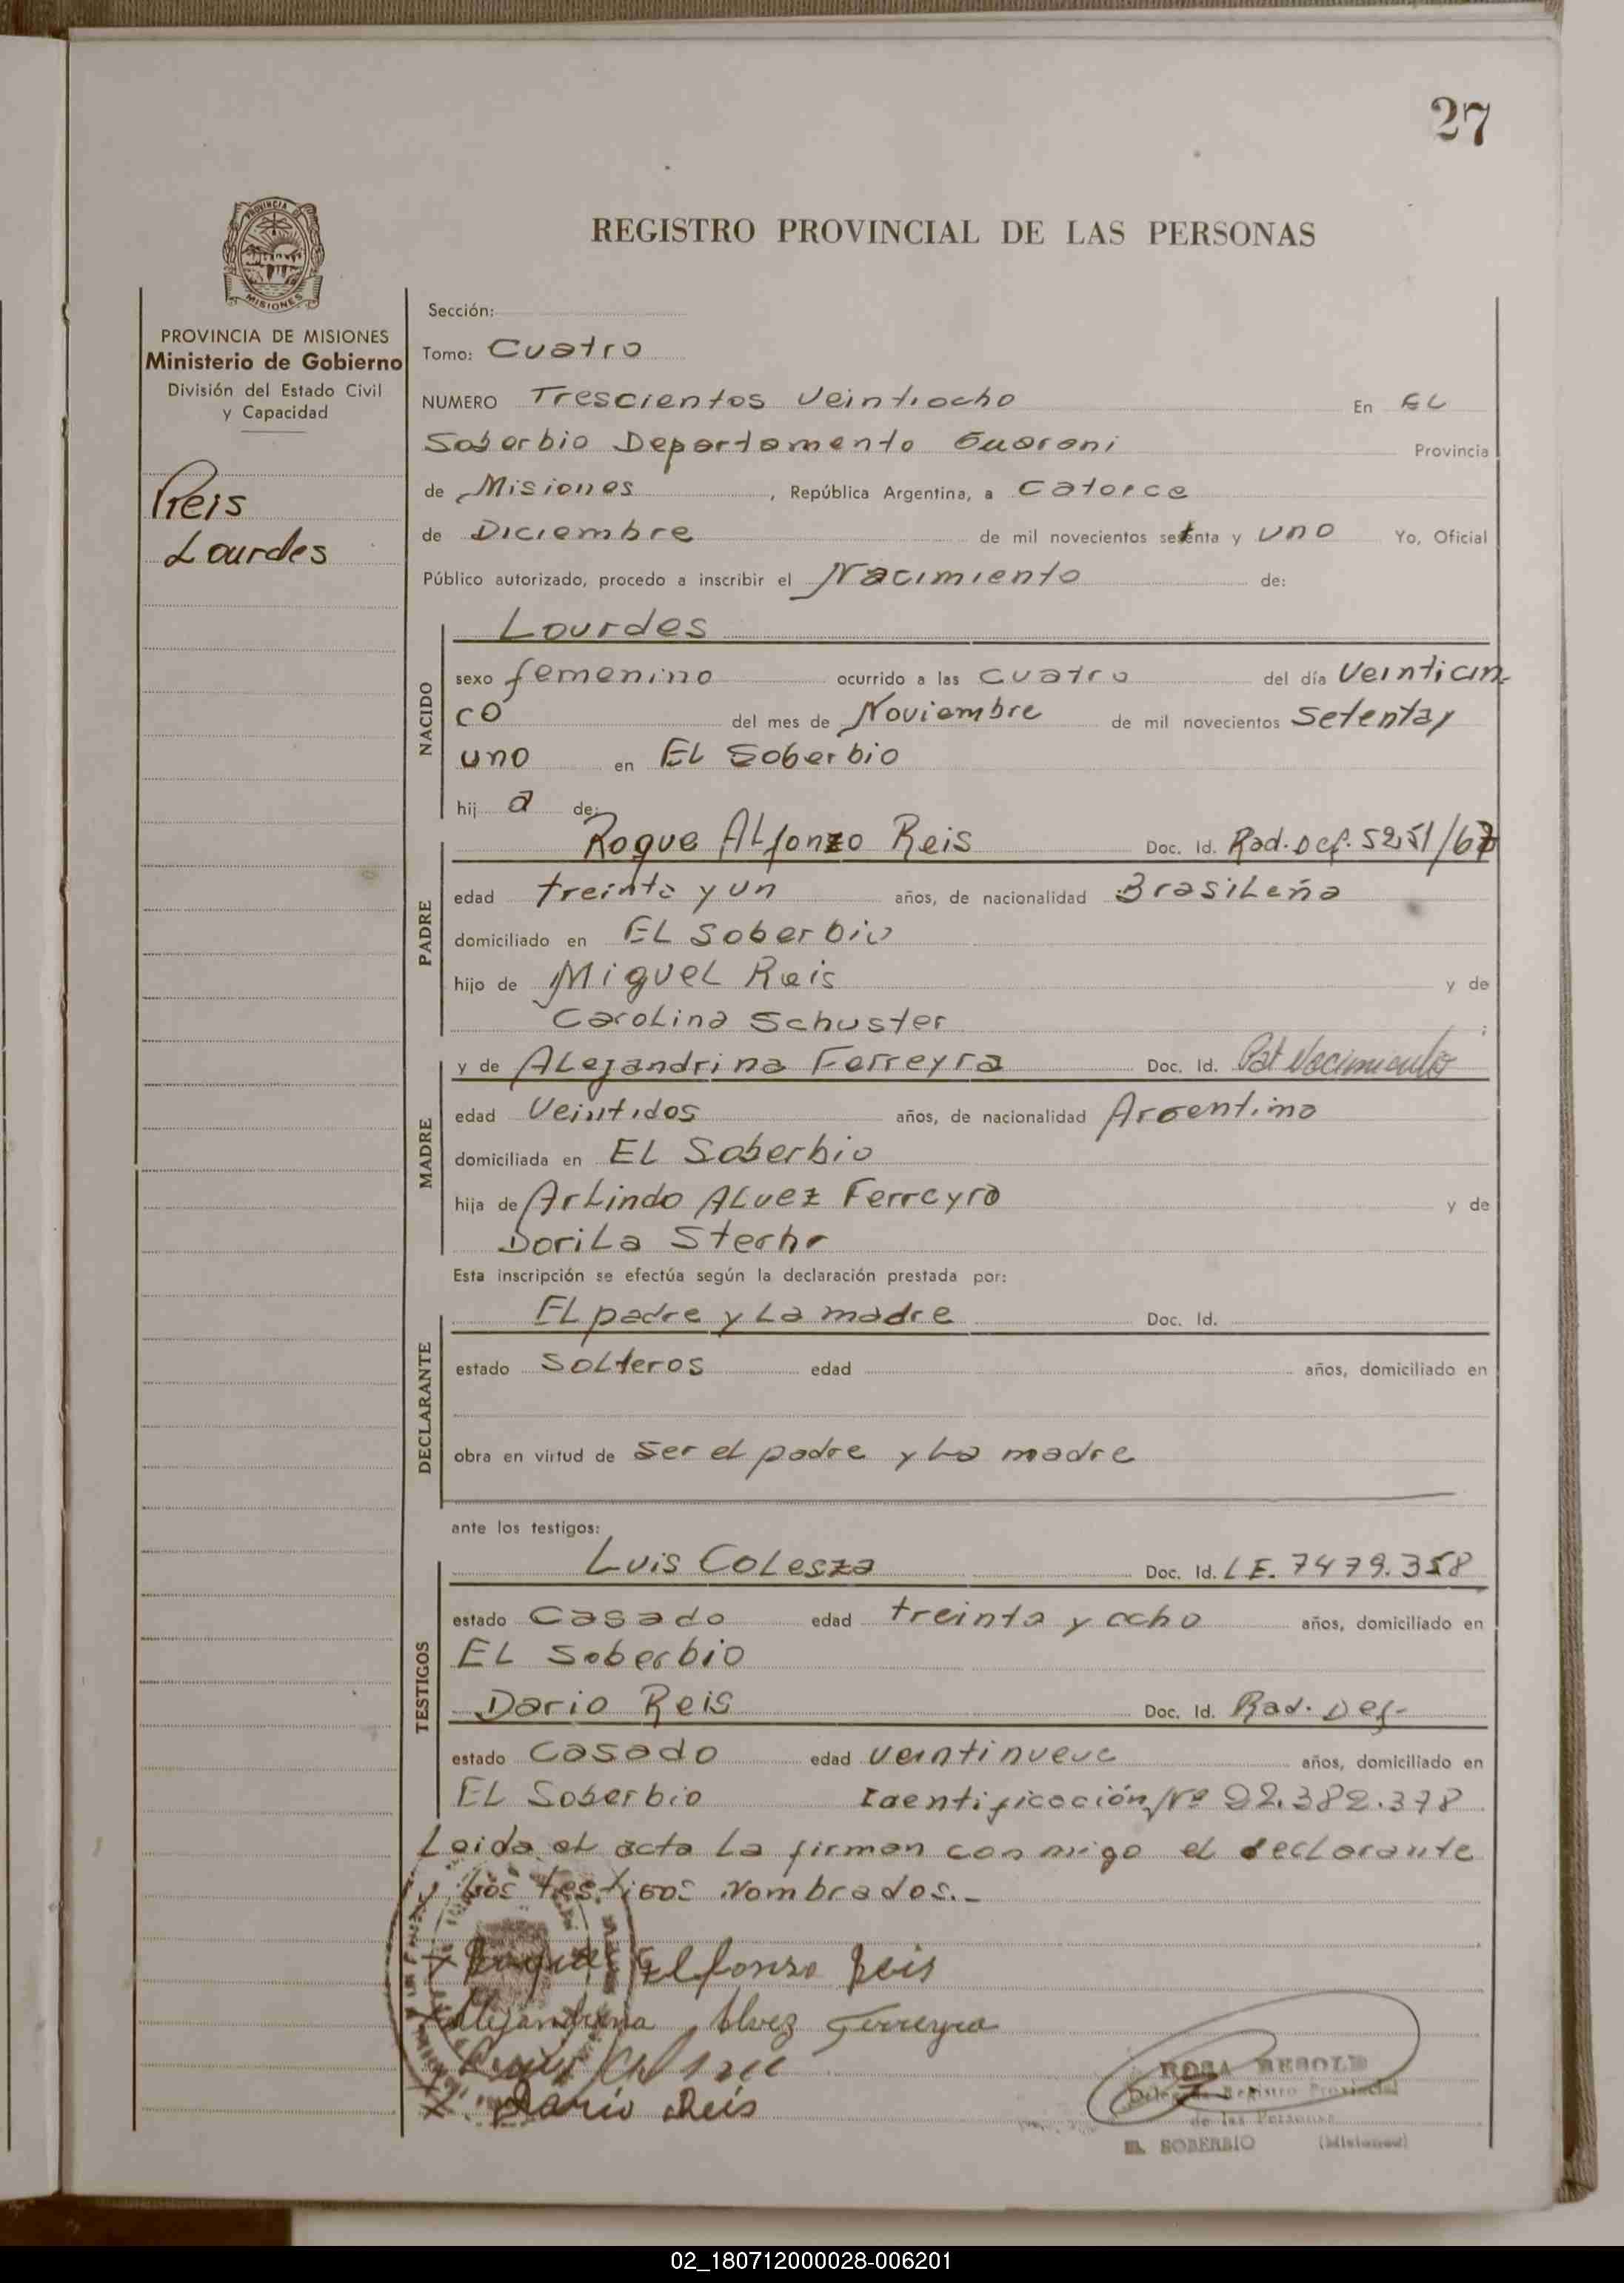 27
PROVINCIA DE
MISIONES
REGISTRO PROVINCIAL DE LAS PERSONAS
PROVINCIA DE MISIONES
Ministerio de Gobierno
División del Estado Civil
y Capacidad
Reis
Lourdes
Sección:
Tomo: Cuatro
NUMERO Trescientos Veintiocho En EL
Soberbio Departamento Guarani Provincia
de Misiones, República Argentina, a Catorce
de Diciembre de mil novecientos setenta y uno Yo, Oficial
Público autorizado, procedo a inscribir el Nacimiento de:
NACIDO
Lourdes
sexo femenino ocurrido a las cuatro del día Veinticin-
co del mes de Noviembre de mil novecientos Setenta y
uno en EL Soberbio
hij a de:
PADRE
Roque ALfonzo Reis Doc. Id. Rad. Def. 5251/67
edad treinta y un años, de nacionalidad BrasiLeña
domiciliado en EL Soberbio
hijo de MigueL Reis y de
CaroLina Schuster ;
MADRE
y de ALejandrina Ferreyra Doc. Id. Nacimiento
edad Veintidos años, de nacionalidad Argentina
domiciliada en EL Soberbio
hija de ArLindo ALvez Ferreyra y de
DoriLa
Esta inscripción se efectúa según la declaración prestada por:
DECLARANTE
EL padre y La madre Doc. Id.
estado SoLteros edad años, domiciliado en
obra en virtud de Ser eL padre y La madre
ante los testigos:
TESTIGOS
Luis CoLesza Doc. Id. L E. 7479.358
estado Casado edad treinta y ocho años, domiciliado en
EL Soberbio
Dario Reis Doc. Id. Rad. Def-
estado Casado edad veintinueve años, domiciliado en
EL Soberbio Identificación Nº 92.382.378
Leida eL acta La firman con migo eL decLarante
y Los testigos Nombrados.-
X Roque Elfonso Reis
X Alejandrina Alvez Ferreyra
X Luis
X Dario Reis
ROSA BESOLD
Delegada Registro Provincial
de las Personas
EL SOBERBIO (Misiones)
02_180712000028-006201